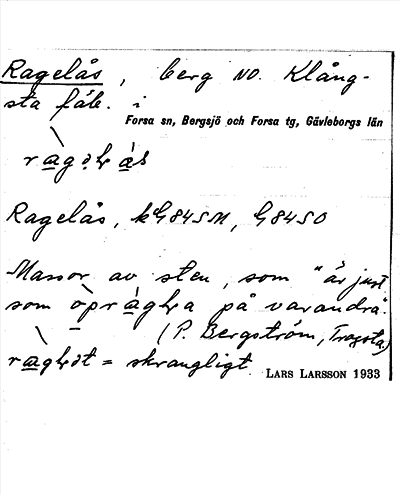 Ragelås, berg NO. Klång-
sta fäb. i
Forsa sn, Bergsjö och Forsa tg, Gävleborgs län
Ragelås, kG84SM, G84SO
Massor av sten, som "är just
som på varandra".
(P. Bergström, Tragsta)
= skrangligt.
LARS LARSSON 1933